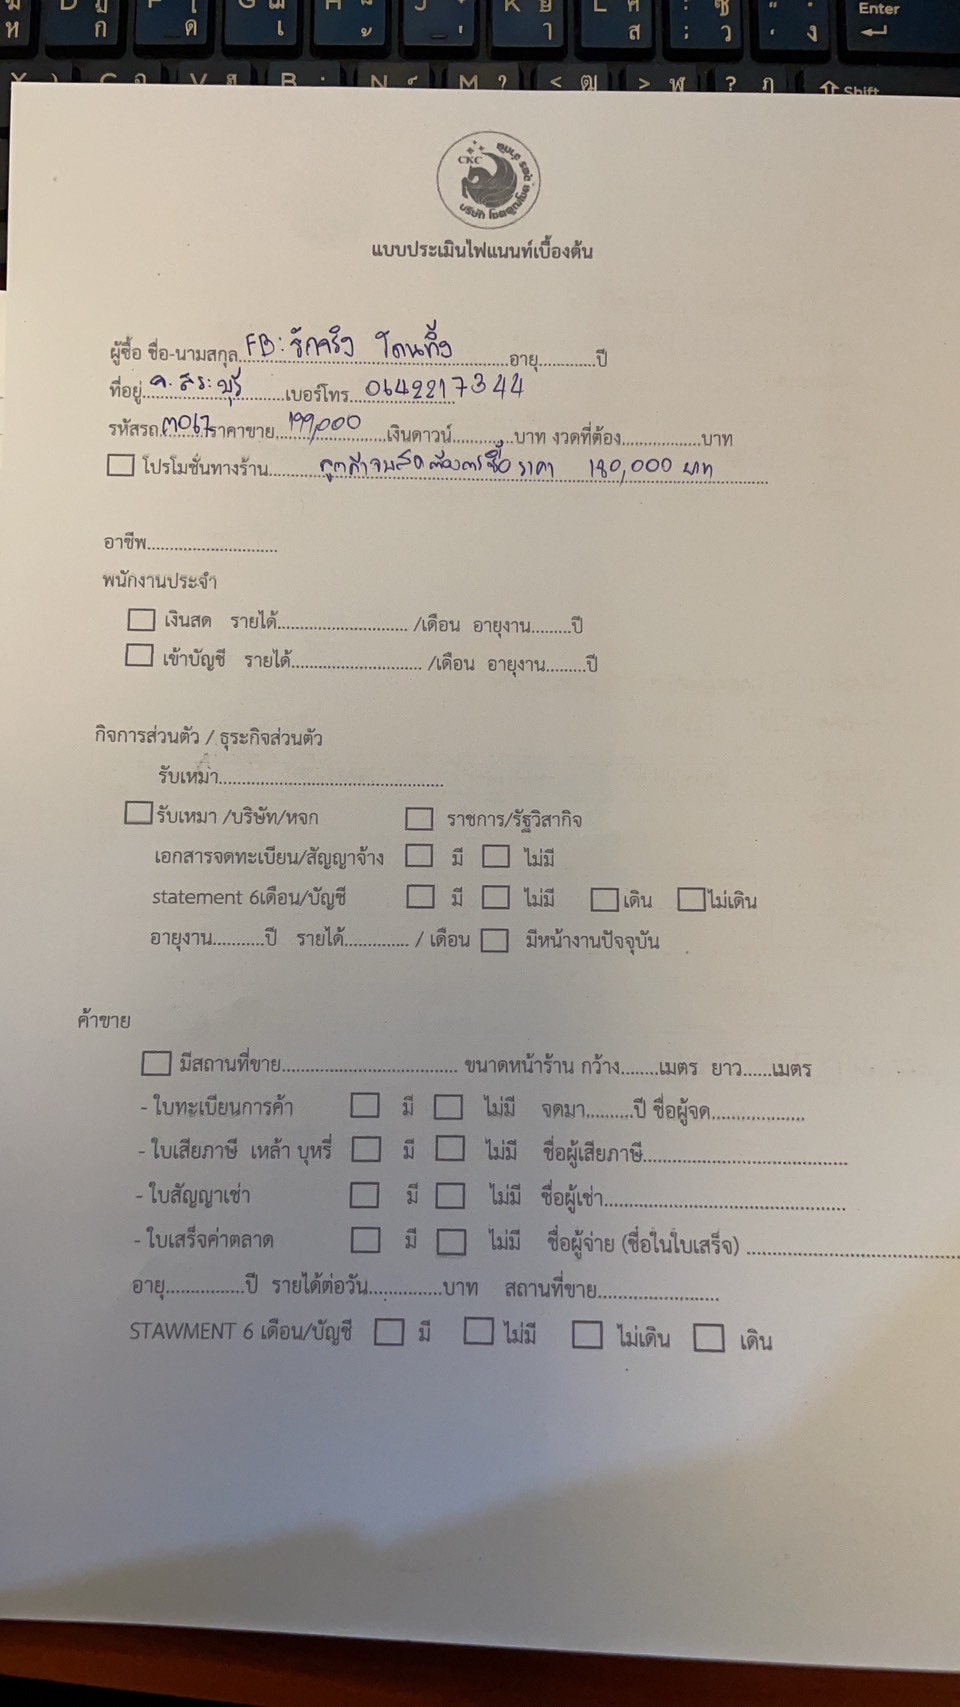 Enter
Shift
CKC
แบบประเมินไฟแนนท์เบื้องต้น
ผู้ซื้อ ชื่อ-นามสกุล FB: รักจริง โดนทิ้ง อายุ............ปี
ที่อยู่ จ. สระบุรี เบอร์โทร 0642217344
รหัสรถ ๓067 ราคาขาย 199,000 เงินดาวน์............บาท งวดที่ต้อง.................บาท
โปรโมชั่นทางร้าน ลูกค้าจบสดต้องการซื้อ ราคา 180,000 บาท
อาชีพ.............................
พนักงานประจำ
เงินสด รายได้............................. /เดือน อายุงาน.........ปี
เข้าบัญชี รายได้............................. /เดือน อายุงาน.........ปี
กิจการส่วนตัว / ธุระกิจส่วนตัว
รับเหมา..................................................
รับเหมา /บริษัท/หจก ราชการ/รัฐวิสากิจ
เอกสารจดทะเบียน/สัญญาจ้าง มี ไม่มี
statement 6เดือน/บัญชี มี ไม่มี เดิน ไม่เดิน
อายุงาน...........ปี รายได้.............. / เดือน มีหน้างานปัจจุบัน
ค้าขาย
มีสถานที่ขาย....................................... ขนาดหน้าร้าน กว้าง........เมตร ยาว......เมตร
- ใบทะเบียนการค้า มี ไม่มี จดมา..........ปี ชื่อผู้จด....................
- ใบเสียภาษี เหล้า บุหรี่ มี ไม่มี ชื่อผู้เสียภาษี.............................................
- ใบสัญญาเช่า มี ไม่มี ชื่อผู้เช่า.....................................................
- ใบเสร็จค่าตลาด มี ไม่มี ชื่อผู้จ่าย (ชื่อในใบเสร็จ) ...............................................
อายุ.................ปี รายได้ต่อวัน................บาท สถานที่ขาย..........................
STAWMENT 6 เดือน/บัญชี มี ไม่มี ไม่เดิน เดิน